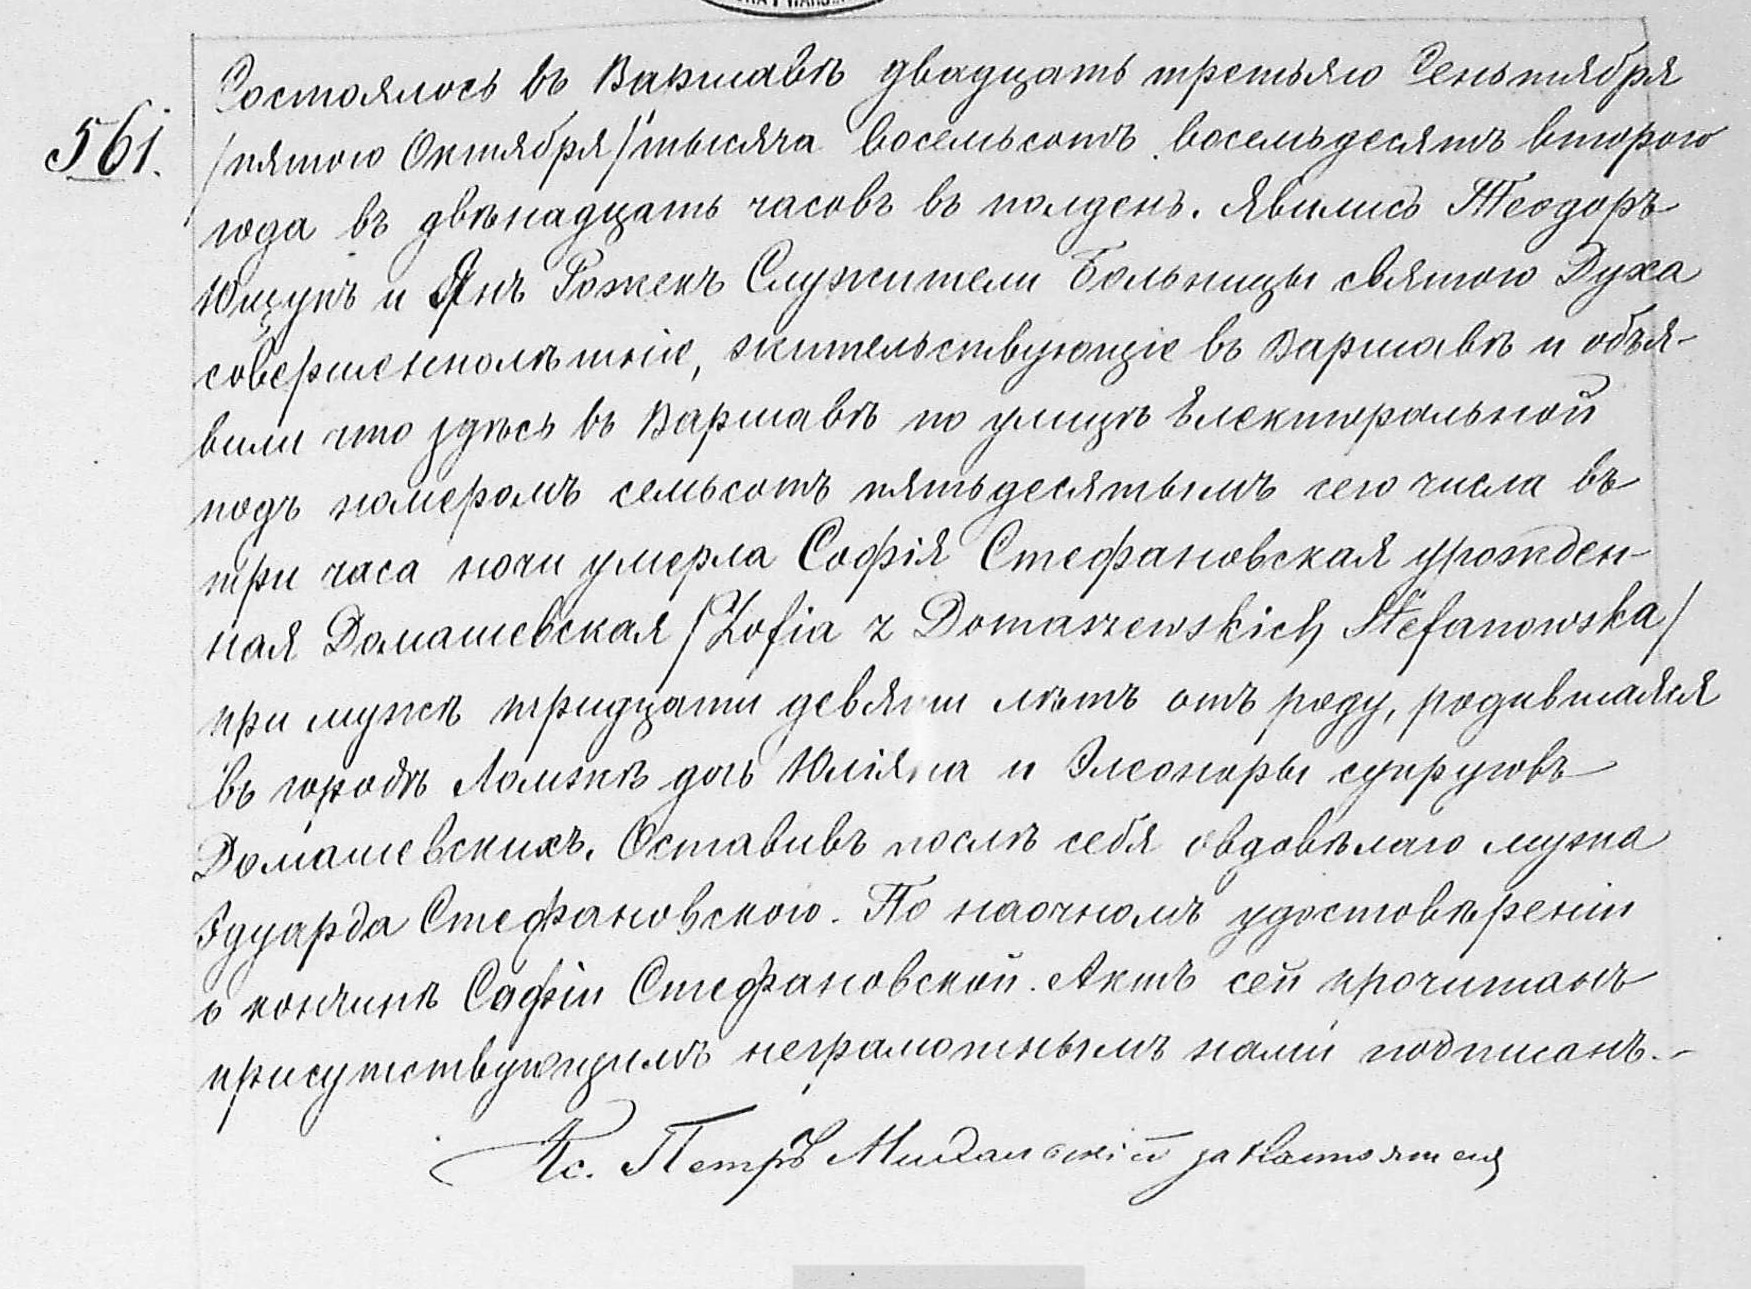 561.
Состоялось въ Варшавѣ двадцать третьяго Сентября
/пятого Октября/ тысяча восемьсотъ восемьдесятъ второго
года въ двѣнадцать часовъ въ полдень. Явились Теодоръ
Ющукъ и Янъ Рожекъ Служители Больницы святого Духа
совершеннолѣтніе, жительствующіе въ Варшавѣ и объя-
вили что здѣсь въ Варшавѣ по улицѣ Електоральной
подъ номеромъ семьсотъ пятьдесятымъ сего числа въ
три часа ночи умерла Софія Стефановская урожден-
ная Домашевская /Zofia z Domaszewskich Stefanowska/
при мужѣ тридцати девяти лѣтъ отъ роду, родившаяся
въ городѣ Ломжѣ дочь Юліяна и Элеоноры супруговъ
Домашевскихъ. Оставивъ послѣ себя овдовѣлаго мужа
Эдуарда Стефановского. По наочномъ удостовѣреніи
о кончинѣ Софіи Стефановской. Актъ сей прочитанъ
присутствующимъ неграмотнымъ нами подписанъ.-
Кс. Петръ за Настоятеля